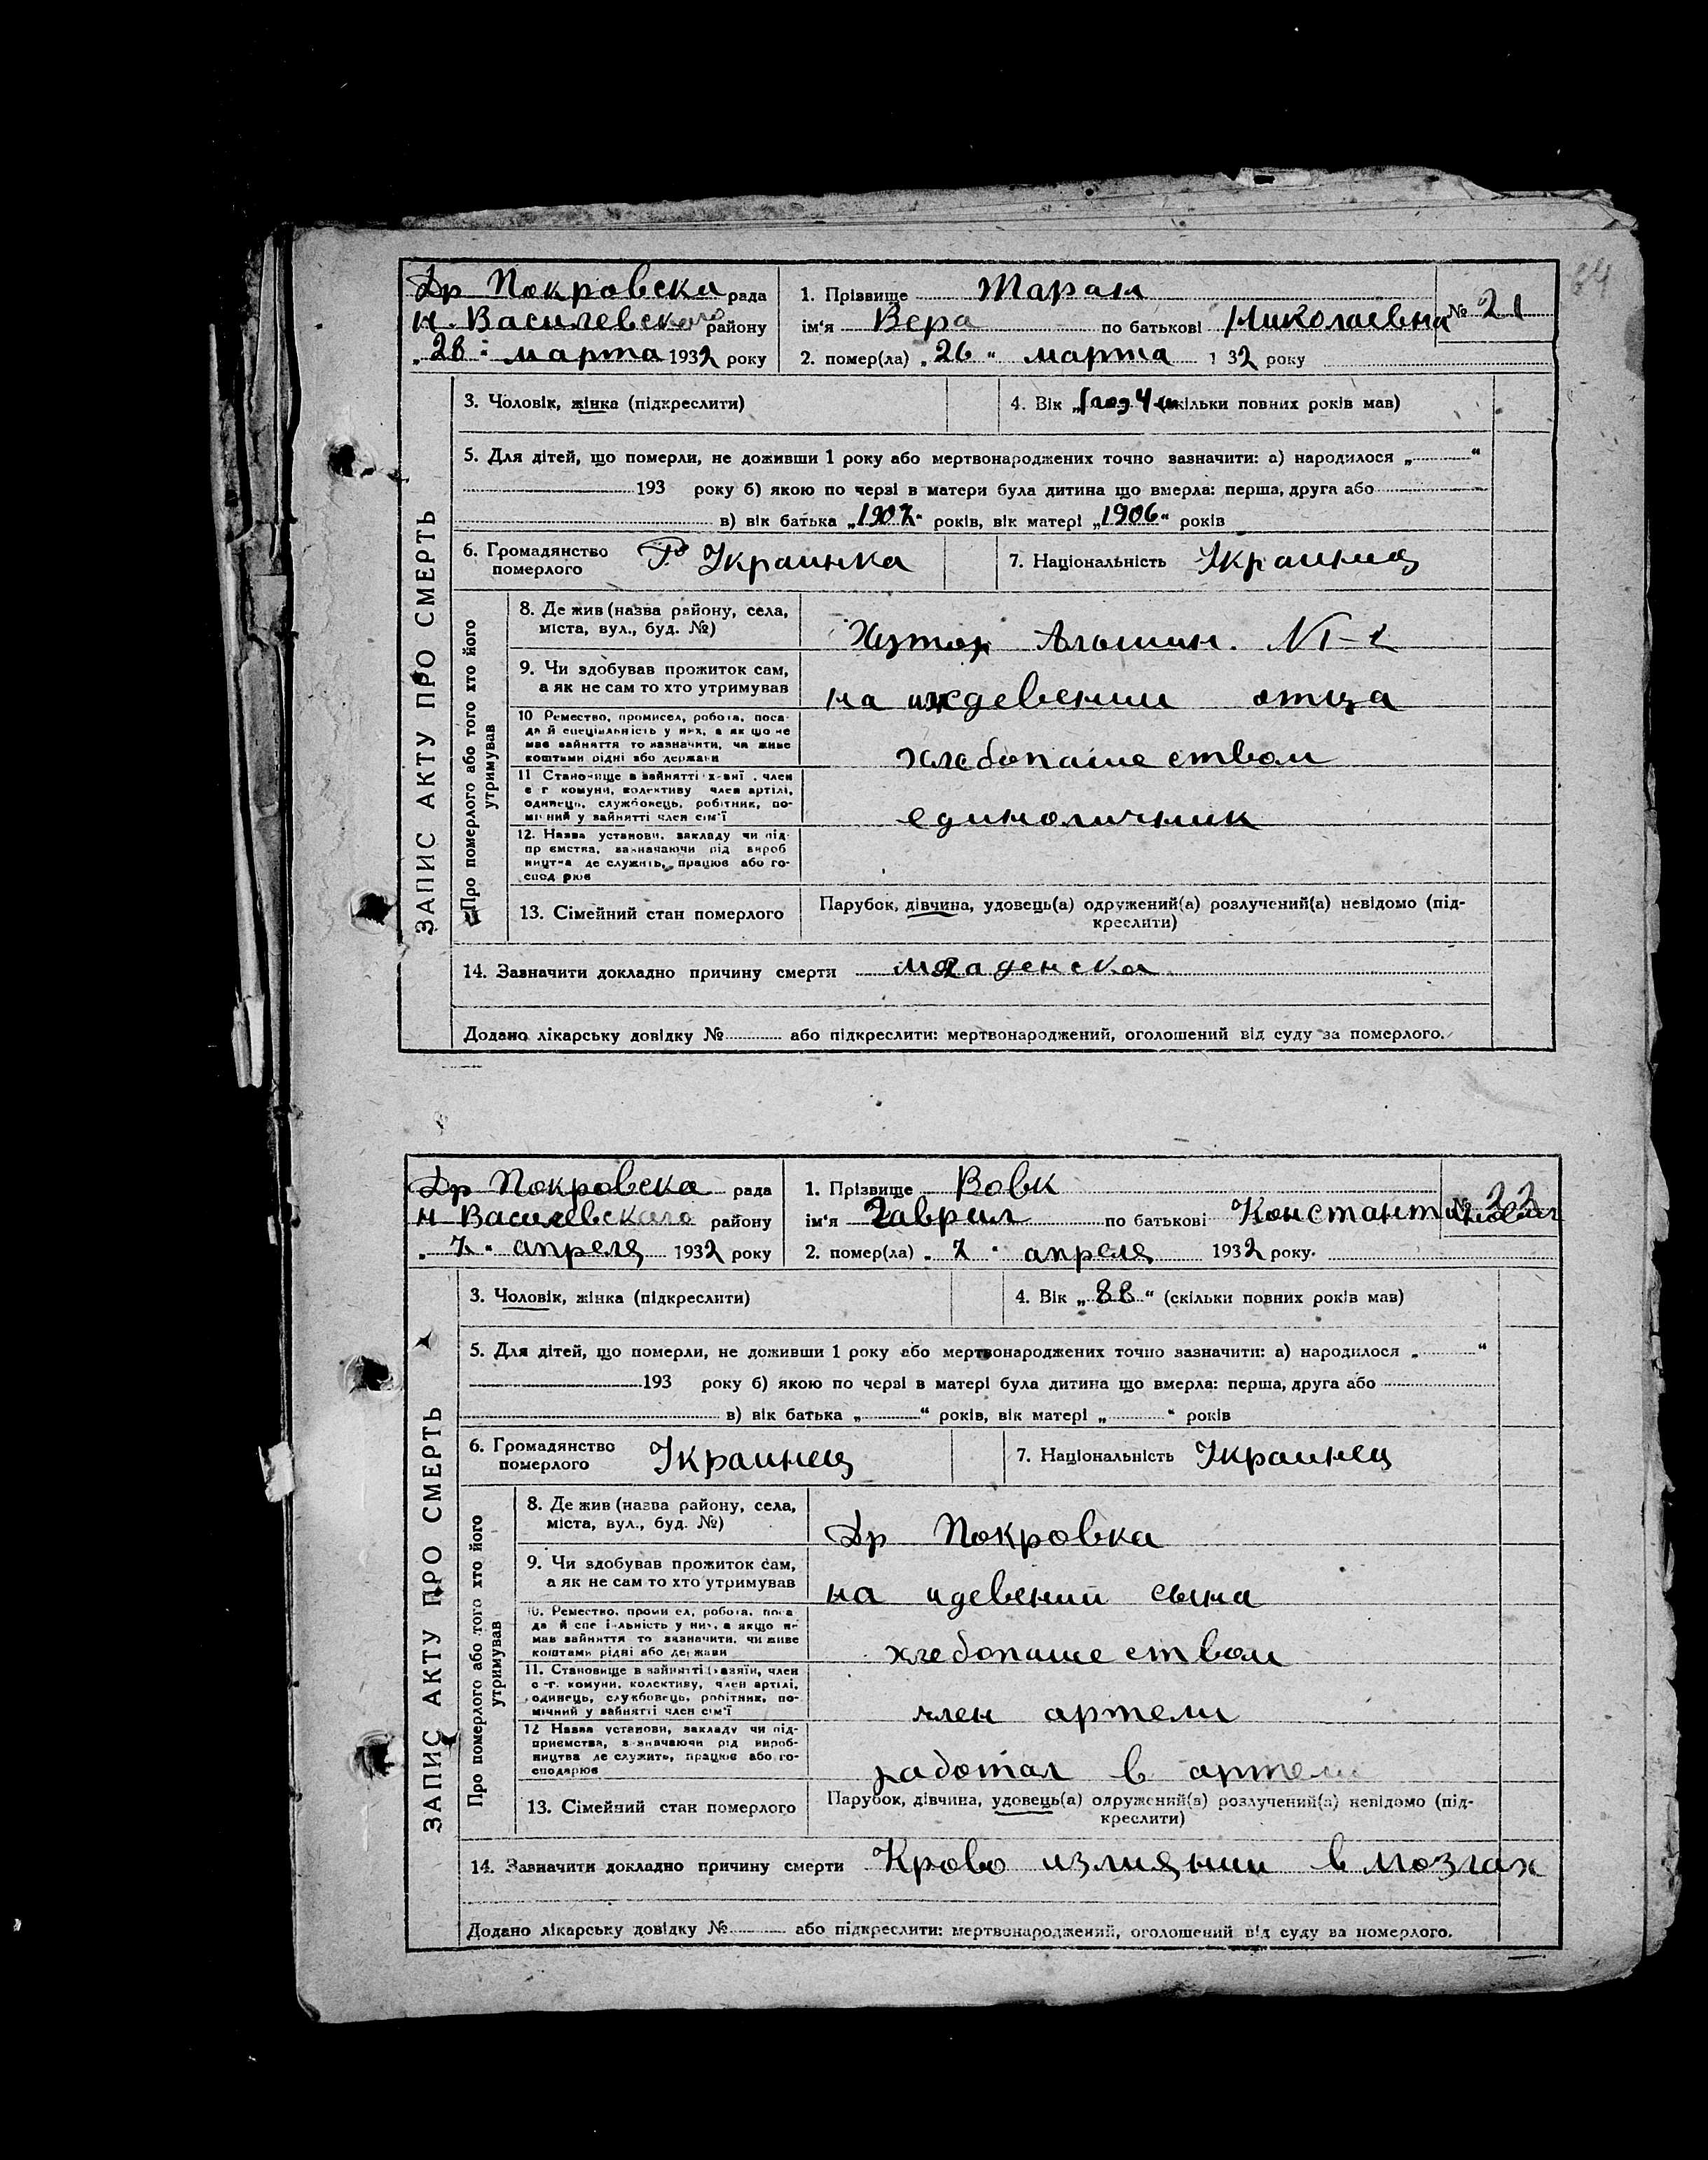 64
Др Покровска рада
1. Прізвище Таран
№ 21
н. Василевского району
ім'я Вера по батькові Николаевна
„28" марта 1932 року
2. помер(ла) „26" марта 1 32 року
ЗАПИС АКТУ ПРО СМЕРТЬ
3. Чоловік, жінка (підкреслити)
4. Вік „1 год 4 м (скільки повних років мав)
5. Для дітей, що померли, не доживши 1 року або мертвонароджених точно зазначити: а) народилося „ "
193 року б) якою по черзі в матери була дитина що вмерла: перша, друга або
в) вік батька „1907" років, вік матері „1906" років
6. Громадянство померлого Украинка
7. Національність Украинец
Про померлого або того хто його утримував
8. Де жив (назва району, села, міста, вул., буд. №)
Хутор №-1
9. Чи здобував прожиток сам, а як не сам то хто утримував
на иждевении отца
10 Ремество, промисел, робота, поса-
да й спеціяльність у них, а як що не
має зайняття то зазначити, чи живе
коштами рідні або держави
хлебопашеством
11 Становище в зайнятті х-яні , член
с г комуни, колективу член артілі,
одинець, службовець, робітник, по-
мічний у зайнятті член сім'ї
единоличник
12. Назва установи, закладу чи під-
пр ємства, зазначаючи рід вироб
ництва де служить, працює або го-
спод рює
13. Сімейний стан померлого
Парубок, дівчина, удовець(а) одружений(а) розлучений(а) невідомо (під-
креслити)
14. Зазначити докладно причину смерти младенска
Додано лікарську довідку № або підкреслити: мертвонароджений, оголошений від суду за померлого.
Др Покровска рада
1. Прізвище Вовк
№ 22
н Василевского району
ім'я Гаврил по батькові Константинович
„7" апреля 1932 року
2. помер(ла) „7" апреля 1932 року.
ЗАПИС АКТУ ПРО СМЕРТЬ
3. Чоловік, жінка (підкреслити)
4. Вік „88" (скільки повних років мав)
5. Для дітей, що померли, не доживши 1 року або мертвонароджених точно зазначити: а) народилося „ "
193 року б) якою по черзі в матері була дитина що вмерла: перша, друга або
в) вік батька „ " років, вік матері „ " років
6. Громадянство померлого Украинец
7. Національність Украинец
Про померлого або того хто його утримував
8. Де жив (назва району, села, міста, вул., буд. №)
Др Покровка
9. Чи здобував прожиток сам, а як не сам то хто утримував
на идевении сына
10. Ремество, проми ел, робота, поса
да й спе і-льність у них, а якщо н-
мав зайняття то зазначити, чи живе
коштами рідні або держави
хлебопашеством
11. Становище в зайнятті (хазяїн, член
с -г. комуни, колективу, член артілі,
одинець, службовець, робітник, по-
мічний у зайнятті член сім'ї
член артели
12 Назва установи, закладу чи під-
приємства, зазначаючи рід вироб-
ництва де служить, працює або го-
сподарює
работал в артели
13. Сімейний стан померлого
Парубок, дівчина, удовець(а) одружений(а) розлучений(а) невідомо (під-
креслити)
14. Зазначити докладно причину смерти Крово излиянии в мозгах
Додано лікарську довідку № або підкреслити: мертвонароджений, оголошений від суду за померлого.